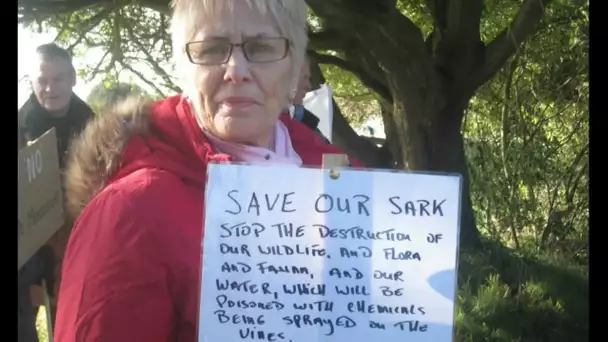 SAVE OUR SARK
STOP THE DESTRUCTION OF
OUR WILDLIFE. AND FLORA
AND FAUNA, AND OUR
WATER, WHICH WILL BE
POISONED WITH CHEMICALS
BEING SPRAYED ON THE
VINES.
NO